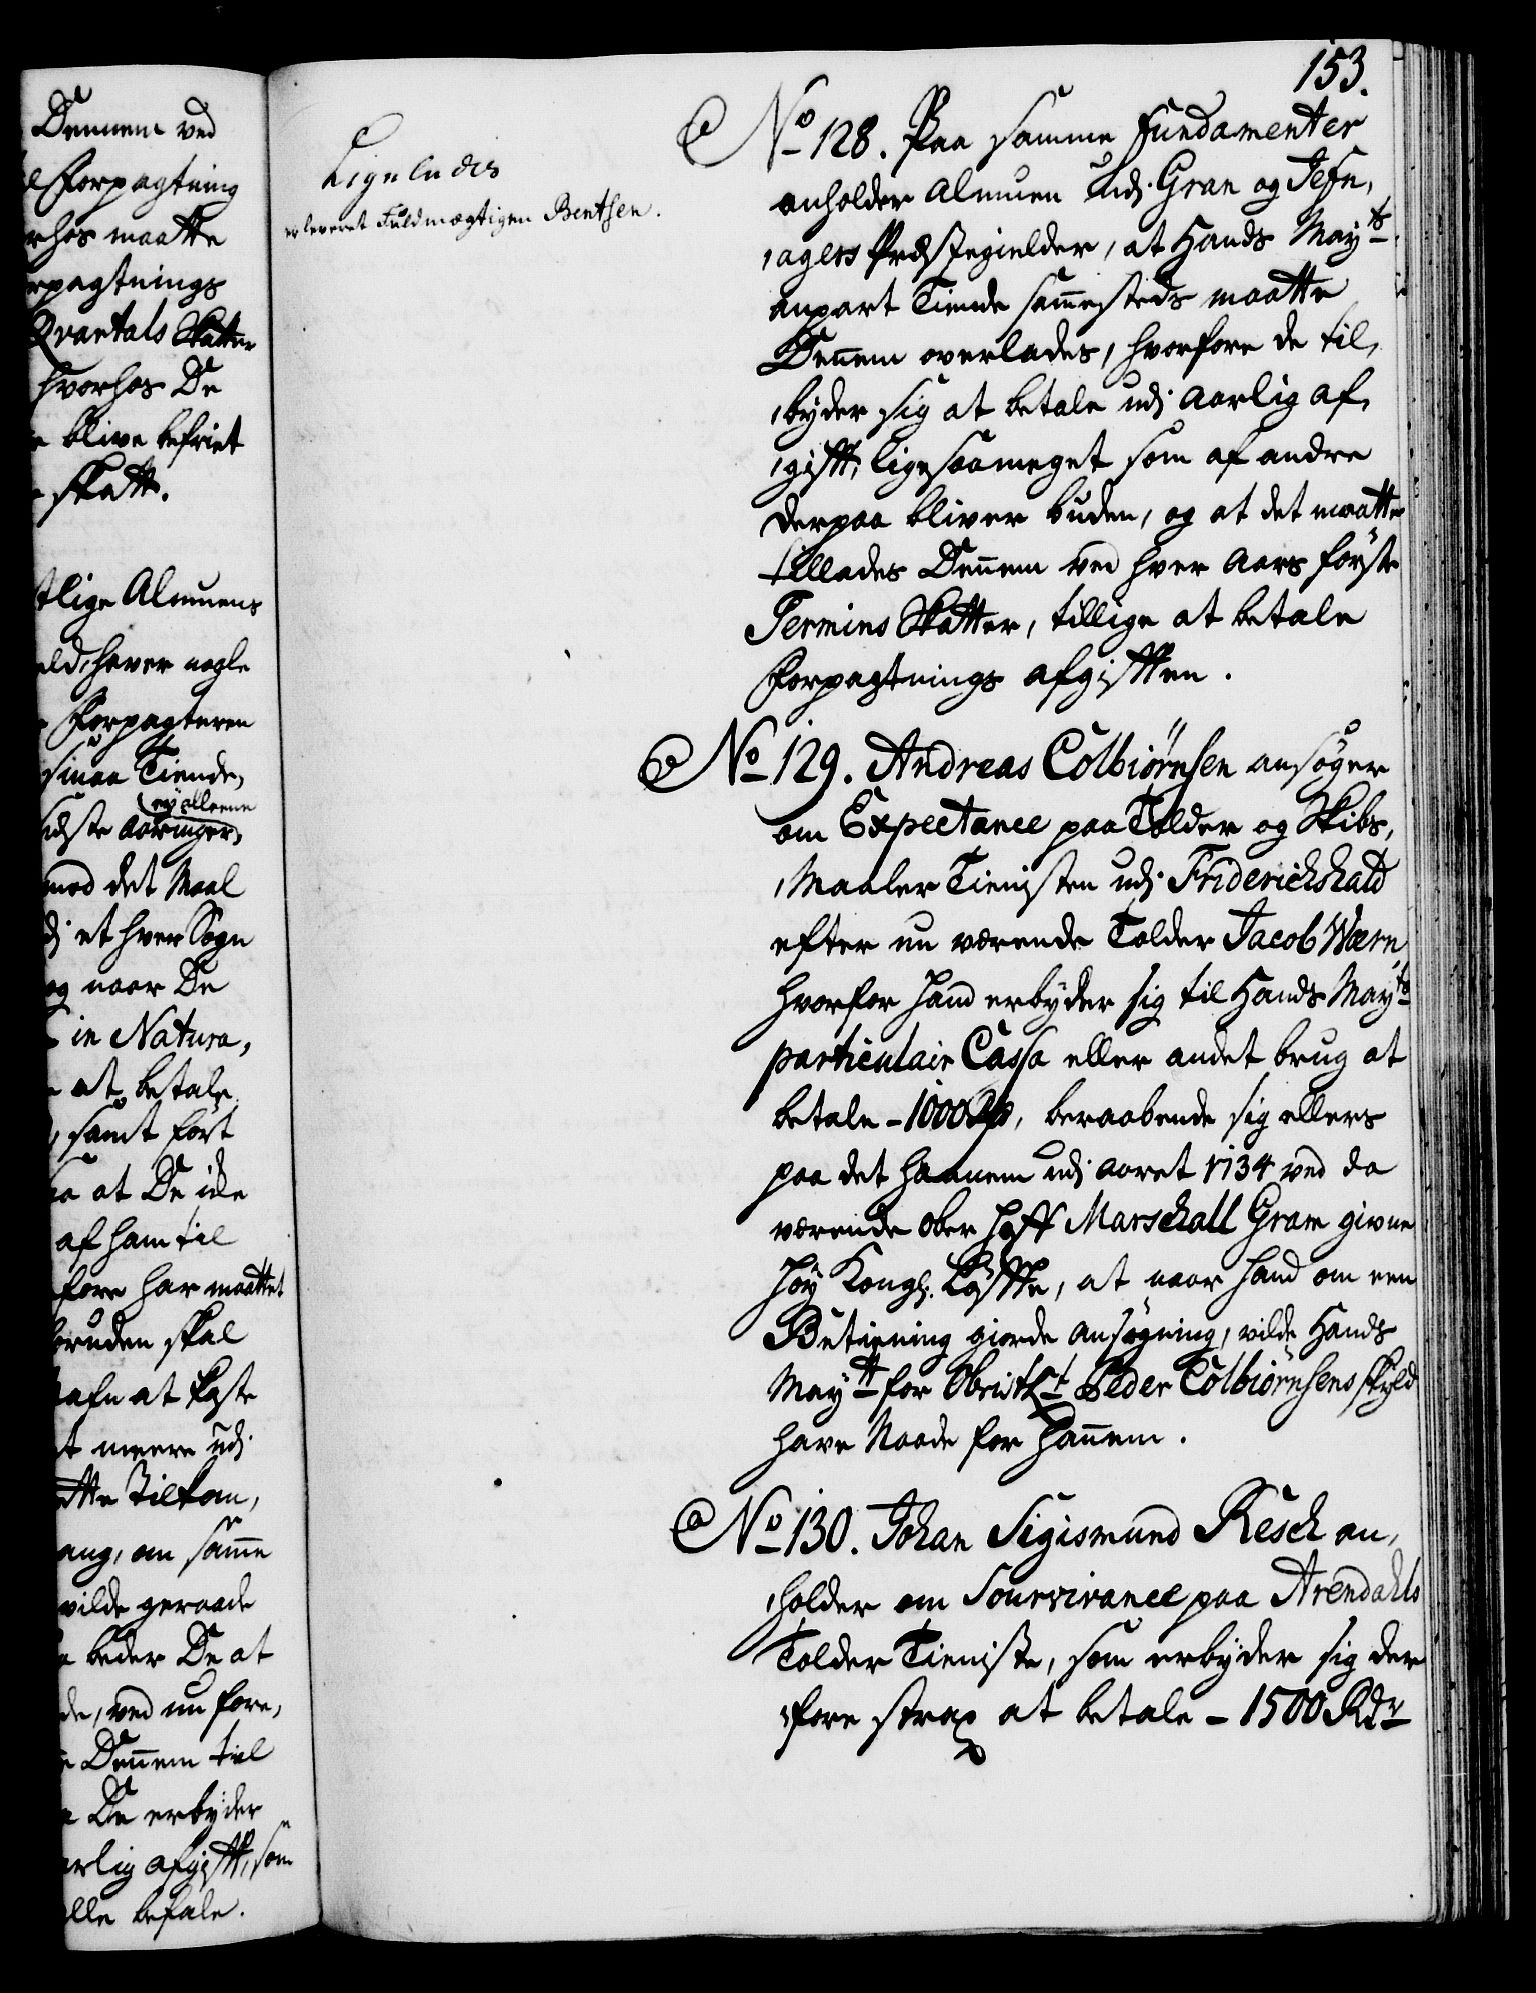 Dennem ved
Forpagtning
rhos maatte
rpagtnings
Qvartals Skatter
hvorhos De
blive befriet
skatt.
tlige Almuens
eld, haver nogle
Forpagteren
sinaa Tiende,
ey alleene
idste Aaringer,
mod det Maal
et hver Sogn
og naar De
in Natura,
at betale
samt fört
at De icke
af ham til
fore har maattet
bruden skal
at kaste
meere udj
tte Tilkom,
ang, om samme
vilde geraade
beder De at
de, ved nu fore,
Dennem til
De erbyder
arlig afgifft, som
lle befale.
153.
Ligeledes
er leveret Fuldmægtigen Bentsen.
No 128. Paa samme Fundamenter
anholder Almuen udj Gran og Jefn,
,agers Præstegielder, at Hands Mayts
anpart Tiende sammesteds maatte
Dennem overlades, hvorfore de til,
,byder sig at betale udj Aarlig af,
,gifft, ligesaameget som af andre
derpaa bliver buden, og at det maatte
tillades Dennem ved hver Aars förste
Termins Skatter, tillige at betale
Forpagtnings afgifften.
No 129. Andreas Colbiörnsen ansöger
om Expectance paa Tolder og Skibs,
,Maaler Tienisten udj Friderichshald
efter nu værende Tolder Jacob Wærn,
hvorfor hand erbyder sig til Hands Mayts
particulair Cassa eller andet brug at
betale - 1000 Rd, beraabende sig ellers
paa det hannem udj Aaret 1734 ved da
værende Ober Hoff Marschall Gram givne
Höy Kongl. Löffte, at naar hand om een
Betiening giorde Ansögning, vilde Hands
Maytt for Obrist Lt Peder Colbiörnsens skyld
have Naade for Hannem.
No 130. Johan Sigismund Resch an,
,holder om Sourvivance paa Arendahls
Tolder Tieniste, som erbyder sig der
,fore strax at betale - 1500 Rdr